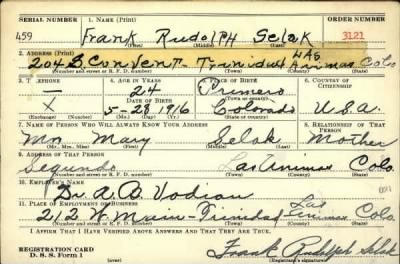 SERIAL NUMBER 1. NAME (Print) ORDER NUMBER
459 Frank Rudolph Selak 3121
(First) (Middle) (Last)
2. ADDRESS (Print)
204 S Convent - Trinidad Las Animas Colo
(Number and street or R. F. D. number) (Town) (County) (State)
3. TELEPHONE 4. AGE IN YEARS 5. PLACE OF BIRTH 6. COUNTRY OF CITIZENSHIP
— 24 Primero
DATE OF BIRTH (Town or county)
X 5-28-1916 Colorado U.S.A.
(Exchange) (Number) (Mo.) (Day) (Yr.) (State or country)
7. NAME OF PERSON WHO WILL ALWAYS KNOW YOUR ADDRESS 8. RELATIONSHIP OF THAT PERSON
Mrs Mary Selak Mother
(Mr., Mrs., Miss) (First) (Middle) (Last)
9. ADDRESS OF THAT PERSON
Segundo Las Animas Colo.
(Number and street or R. F. D. number) (Town) (County) (State)
10. EMPLOYER'S NAME
Dr. A. B. Vodian
11. PLACE OF EMPLOYMENT OR BUSINESS
212 W Main - Trinidad Las Animas Colo
(Number and street or R. F. D. number) (Town) (County) (State)
I AFFIRM THAT I HAVE VERIFIED ABOVE ANSWERS AND THAT THEY ARE TRUE.
REGISTRATION CARD
D. S. S. Form 1 Frank Rudolph Selak